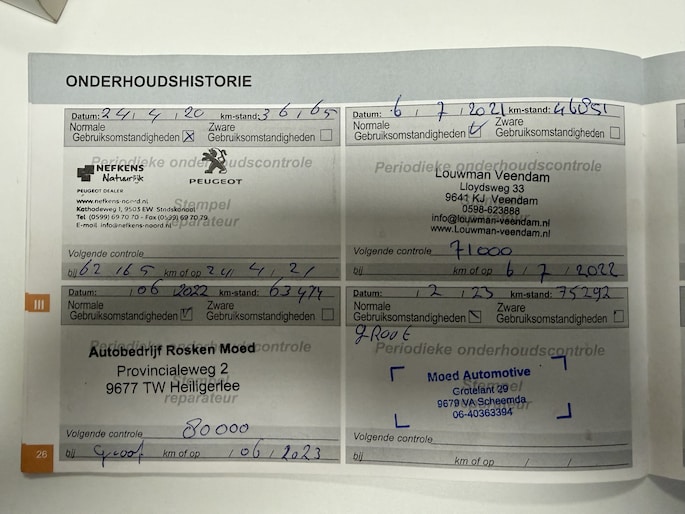 ONDERHOUDSHISTORIE
Datum: 24 / 4 / 20 km-stand: 36165
Normale Gebruiksomstandigheden Zware Gebruiksomstandigheden
Periodieke onderhoudscontrole
NEFKENS
Natuurlijk
PEUGEOT
PEUGEOT DEALER
www.nefkens-noord.nl
Stempel
Kathodeweg 1, 9503 EW Stadskanaal
Tel (0599) 69 70 70 - Fax (0599) 69 70 79
reparateur
E-mail info@nefkens-noord.nl
Volgende controle
bij 62165 km of op 24 / 4 / 21
Datum: 6 / 7 / 2021 km-stand: 46851
Normale Gebruiksomstandigheden Zware Gebruiksomstandigheden
Periodieke onderhoudscontrole
Louwman Veendam
Lloydsweg 33
9641 KJ Veendam
0598-623888
info@louwman-veendam.nl
www.Louwman-veendam.nl
Volgende controle 71000
bij km of op 6 / 7 / 2022
III
Datum: / 06 / 2022 km-stand: 63474
Normale Gebruiksomstandigheden Zware Gebruiksomstandigheden
Periodieke onderhoudscontrole
Autobedrijf Rosken Moed
Provincialeweg 2
9677 TW Heiligerlee
reparateur
Volgende controle 80000
bij Groot km of op / 06 / 2023
Datum: / 2 / 23 km-stand: 75292
Normale Gebruiksomstandigheden Zware Gebruiksomstandigheden
groot
Periodieke onderhoudscontrole
Moed Automotive
Stempel
Grotelant 29
9679 VA Scheemda
reparateur
06-40363394
Volgende controle
bij km of op / /
26